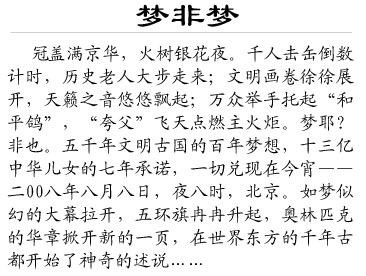 梦非梦
冠盖满京华，火树银花夜。千人击缶倒数
计时，历史老人大步走来；文明画卷徐徐展
开，天籁之音悠悠飘起；万众举手托起“和
平鸽”，“夸父”飞天点燃主火炬。梦耶？
非也。五千年文明古国的百年梦想，十三亿
中华儿女的七年承诺，一切兑现在今宵——
二00八年八月八日，夜八时，北京。如梦似
幻的大幕拉开，五环旗冉冉升起，奥林匹克
的华章掀开新的一页，在世界东方的千年古
都开始了神奇的述说……